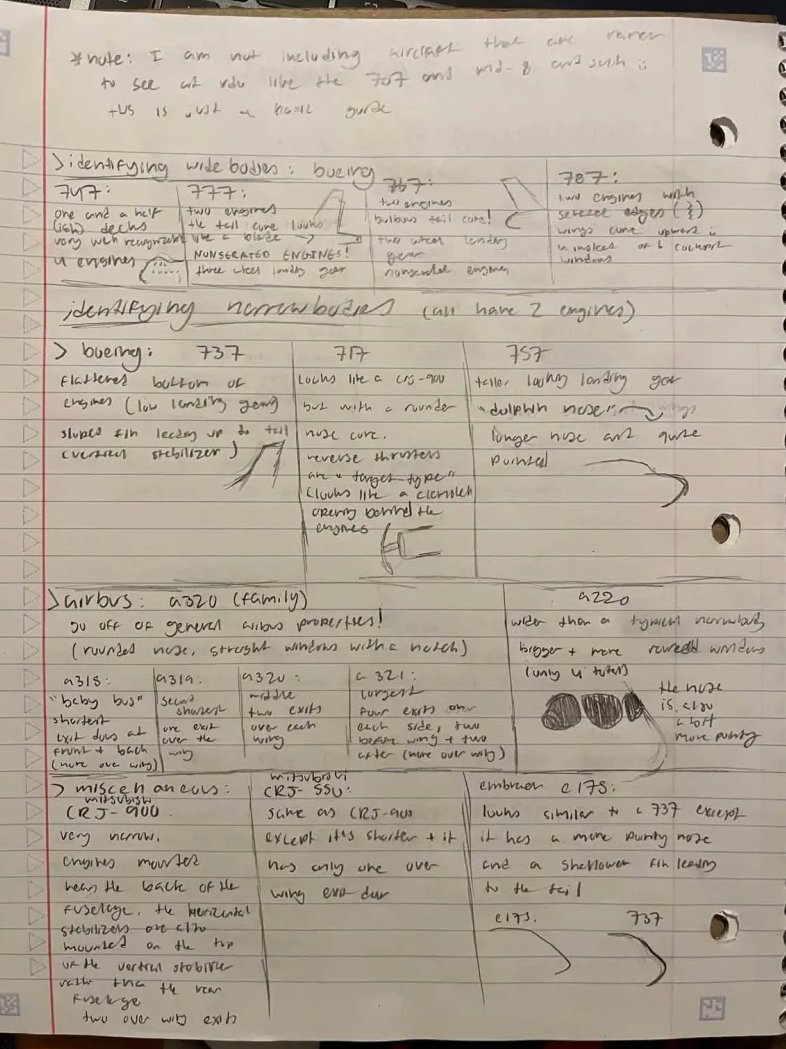 *note: I am not including aircraft that are rarer
to see at rdu like the 707 and md-8 and such :;
this is just a basic guide
>identifying widebodies: boeing
747:
one and a half
(ish) decks
very well recognized
4 engines
777:
two engines
the tail cone looks
like a blade →
NONSERATED ENGINES!
three wheel landing gear
767:
two engines
bulbus tail cone!
two wheel landing
gear
nonserated engines
787:
two engines with
serated edges ( } )
wings curve upward :;
4 instead of 6 cockpit
windows
identifying narrowbodies (all have 2 engines)
> boeing: 737
flattened bottom of
engines (low landing gear)
sloped fin leading up to tail
(vertical stabilizer)
717
looks like a crj-900
but with a rounder
nose cone.
reverse thrusters
are "target-type"
(looks like a clamshell
opening behind the
engines
757
taller looking landing gear
"dolphin nose"
longer nose and quite
pointed
>airbus: a320 (family)
go off of general airbus properties!
(rounded nose, straight windows with a notch)
a318:
"baby bus"
shortest
exit doors at
front + back
(none over wing)
a319:
second
shortest
one exit
over the
wing
a320:
middle
two exits
over each
wing
a321:
largest
four exits on
each side, two
before wing + two
after (none over wing)
a220
wider than a typical narrowbody
bigger + more rounded windows
(only 4 total)
the nose
is also
a lot
more pointy
> miscellaneous:
mitsubishi
CRJ-900
very narrow.
engines mounted
near the back of the
fuselage. the horizontal
stabilizers are also
mounted on the top
of the vertical stabilizer
rather than the rear
fuselage
two over wing exits
mitsubishi
CRJ-550:
same as CRJ-900
except it's shorter + it
has only one over
wing exit door
embraer e175:
looks similar to a 737 except
it has a more pointy nose
and a shallower fin leading
to the tail
e175: 737